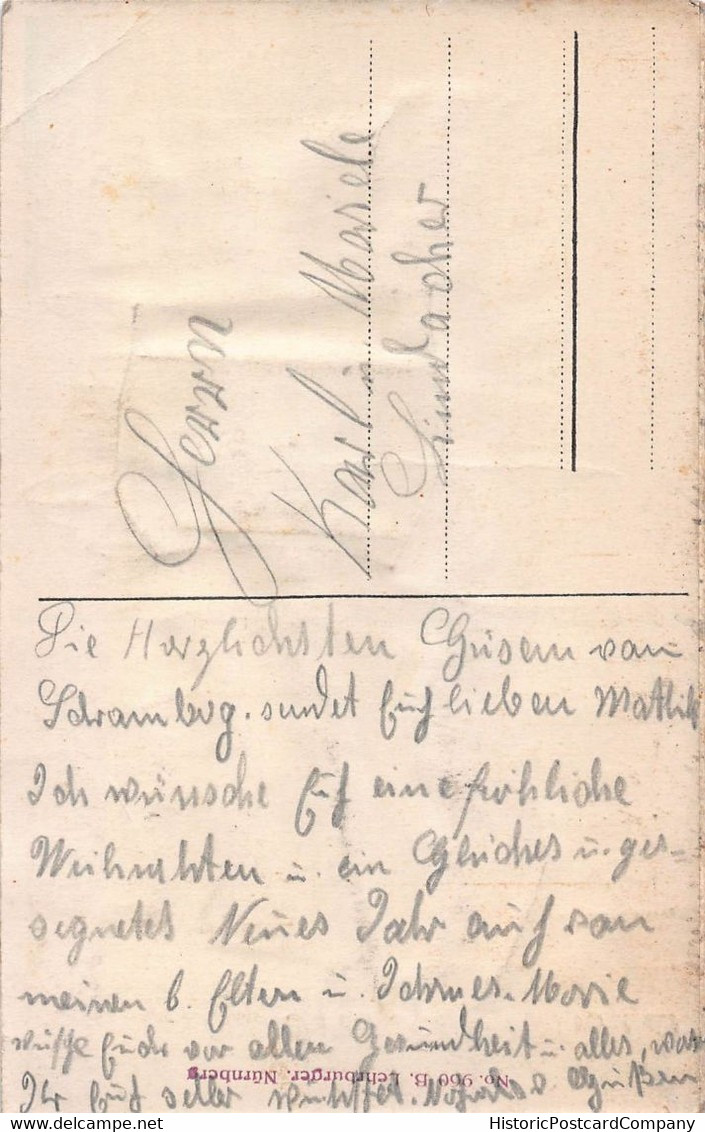 Herrn
Karl Masiele
Die Herzlichsten Grüsem von
Schrambeg. sendet Euch lieben Mathild
Ich wünsche Euch eine fröhliche
Weihnahten u. ein Gliches u. ge-
segnetes Neues Jahr auch von
meinen l. Eltern u. Marie
wüsche Euch vor allem Gesundheit u. alles, was
Ihr Euch selbst wünschet. Grüßen
No. 960 B. Lehrburger, Nürnberg
HistoricPostcardCompany
HistoricPostcardCompany